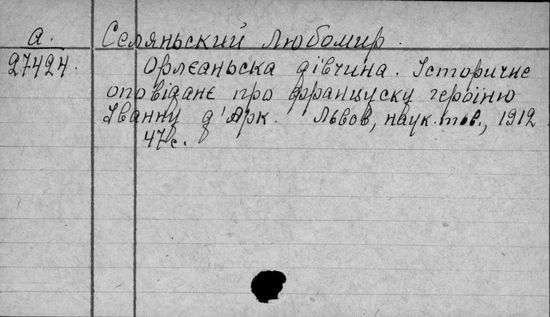 а. Селяньский Любомир.
27424. Орлєаньска дівчина. Історичнє
оповіданє про француску героіню
Іванну д'Арк. Львов, наук. тов., 1912.
47с.